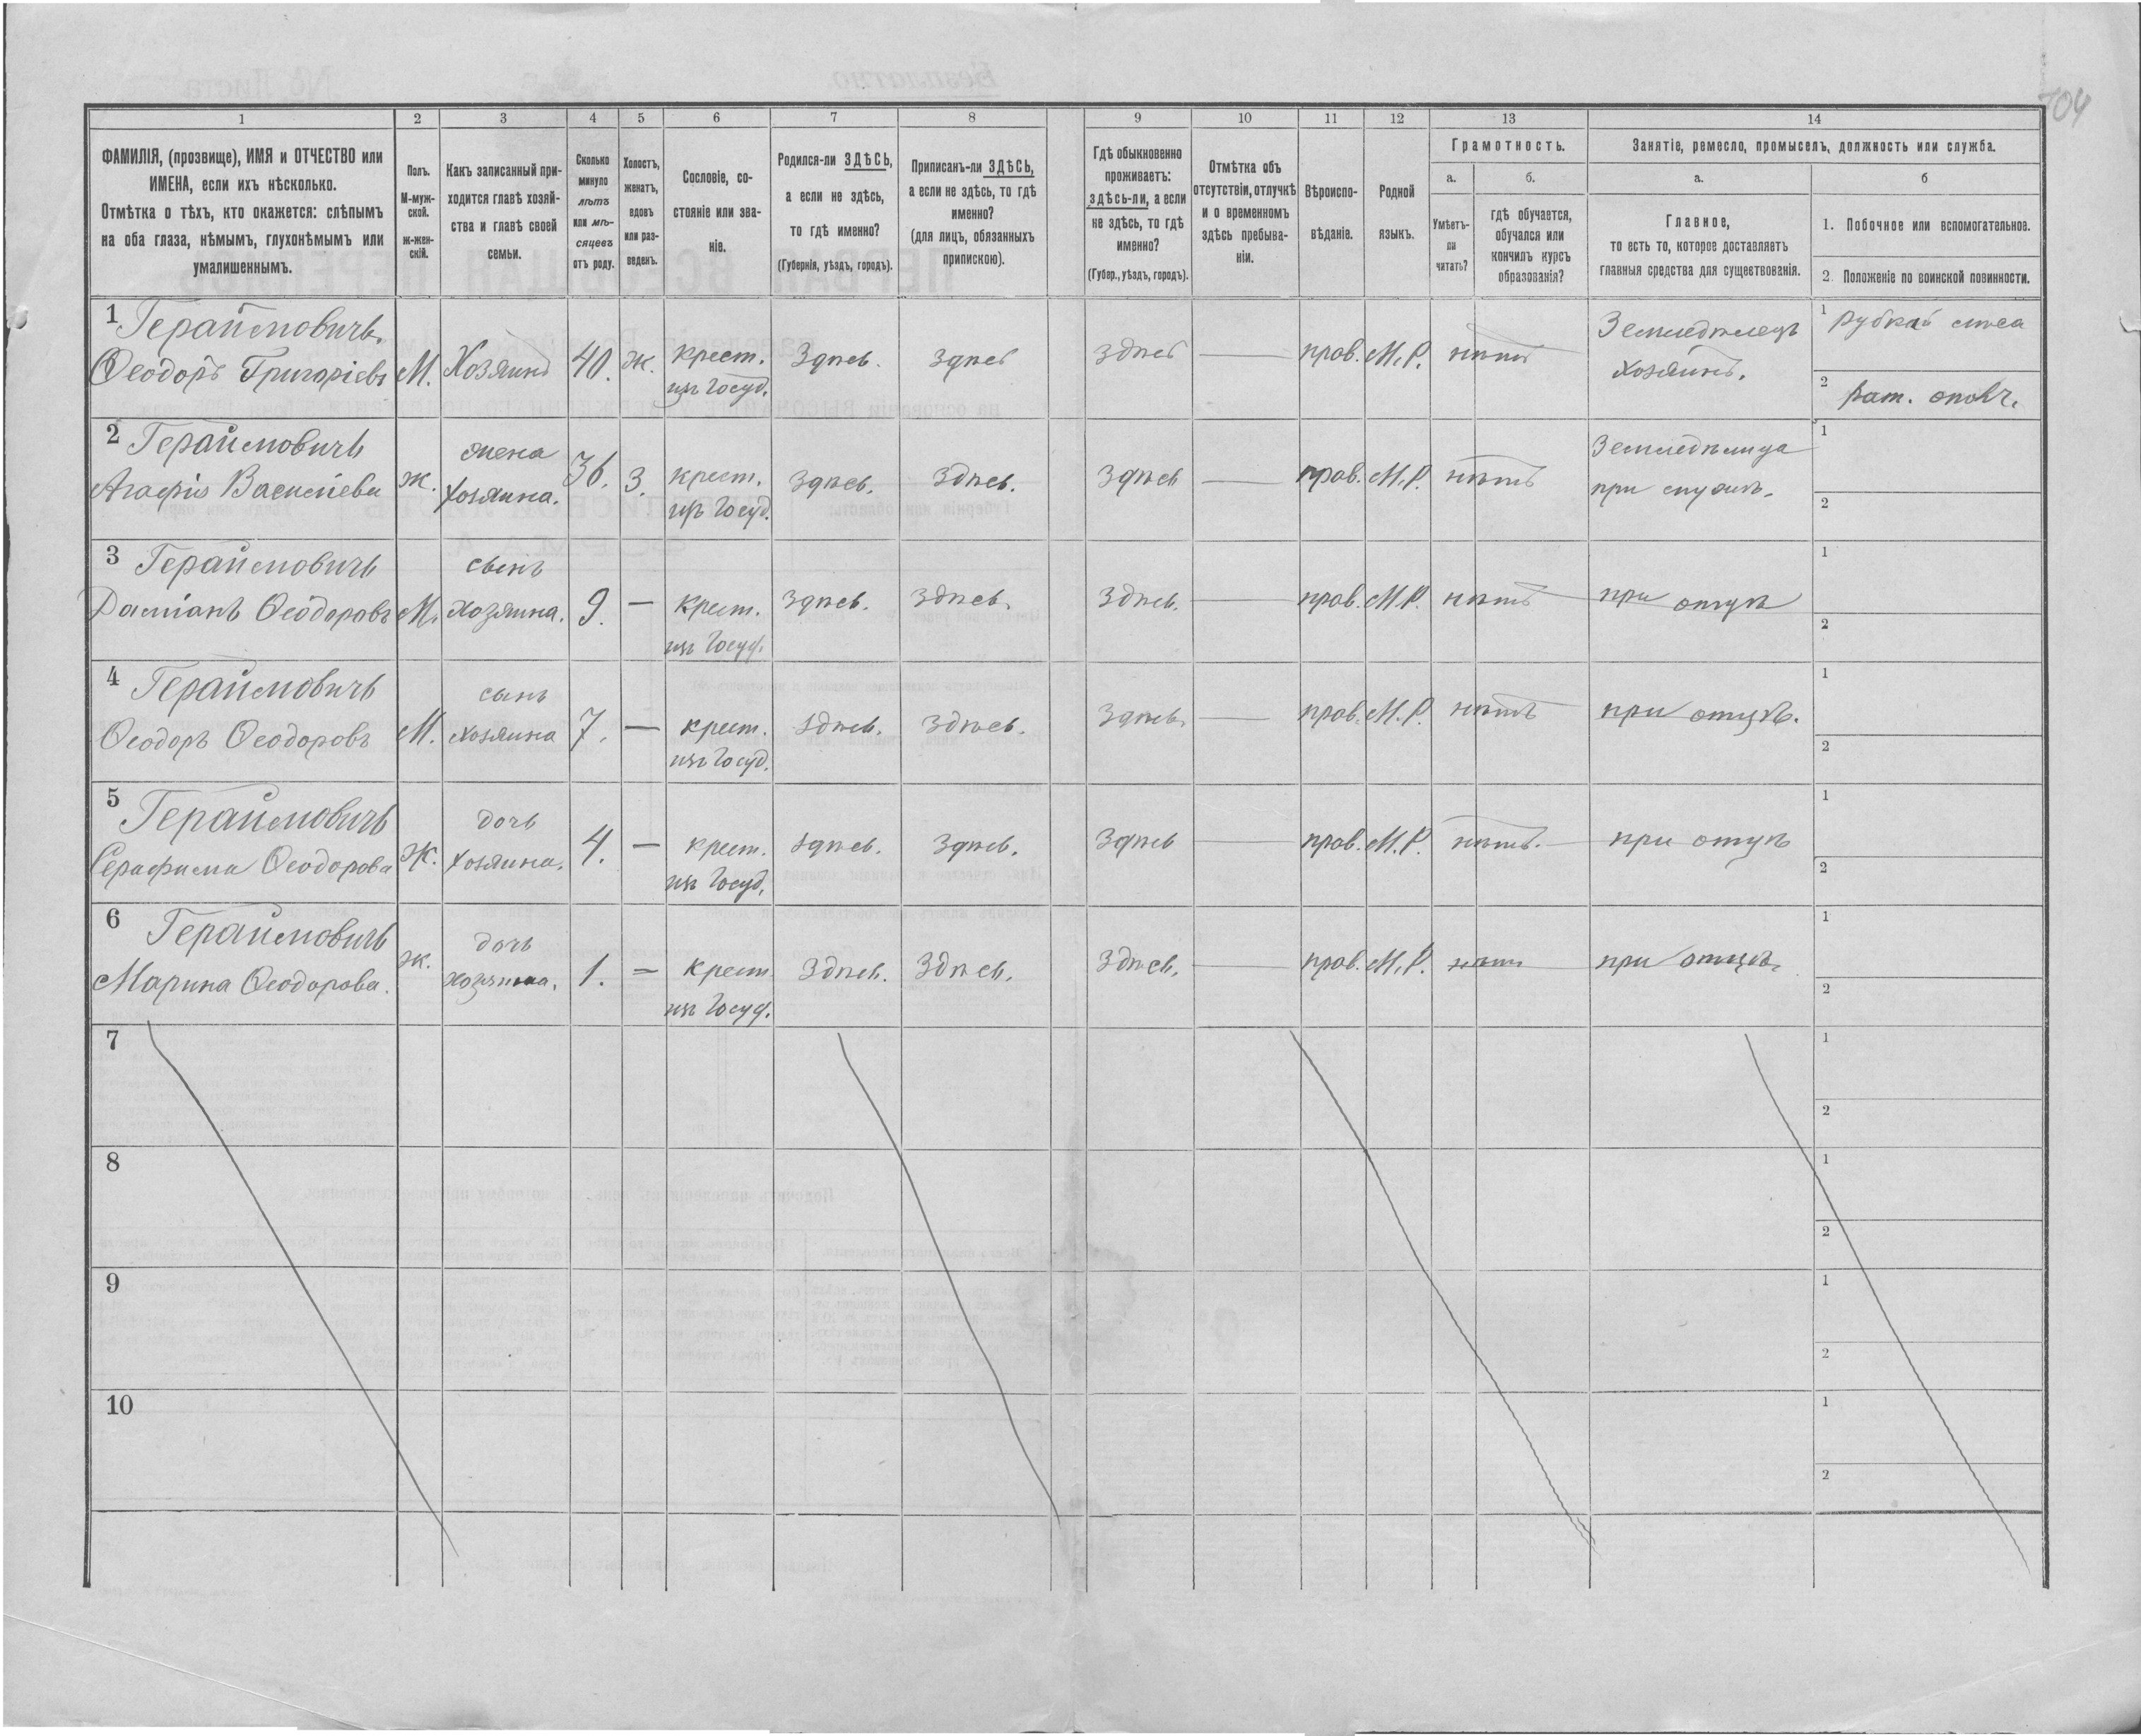 104
1 2 3 4 5 6 7 8 9 10 11 12 13 14
ФАМИЛІЯ, (прозвище), ИМЯ и ОТЧЕСТВО или
ИМЕНА, если ихъ нѣсколько.
Отмѣтка о тѣхъ, кто окажется: слѣпымъ
на оба глаза, нѣмымъ, глухонѣмымъ или
умалишеннымъ.
Полъ.
М-муж-
ской.
ж-жен-
скій.
Какъ записанный при-
ходится главѣ хозяй-
ства и главѣ своей
семьи.
Сколько
минуло
лѣтъ
или мѣ-
сяцевъ
отъ роду.
Холостъ,
женатъ,
вдовъ
или раз-
веденъ.
Сословіе, со-
стояніе или зва-
ніе.
Родился-ли ЗДѢСЬ,
а если не здѣсь,
то гдѣ именно?
(Губернія, уѣздъ, городъ).
Приписанъ-ли ЗДѢСЬ,
а если не здѣсь, то гдѣ
именно?
(для лицъ, обязанныхъ
припискою).
Гдѣ обыкновенно
проживаетъ:
здѣсь-ли, а если
не здѣсь, то гдѣ
именно?
(Губер., уѣздъ, городъ).
Отмѣтка объ
отсутствіи, отлучкѣ
и о временномъ
здѣсь пребыва-
ніи.
Вѣроиспо-
вѣданіе.
Родной
языкъ.
Грамотность.
а.
Умѣетъ-
ли
читать?
б.
гдѣ обучается,
обучался или
кончилъ курсъ
образованія?
Занятіе, ремесло, промыселъ, должность или служба.
а.
Главное,
то есть то, которое доставляетъ
главныя средства для существованія.
б
1. Побочное или вспомогательное.
2. Положеніе по воинской повинности.
1 Гераймовичъ.
Ѳеодоръ Григоріевъ М. Хозяинъ 40. Ж. крест. Здѣсь. Здѣсь Здѣсь — прав. М.Р. нѣтъ
изъ Госуд.
Земледѣлецъ
хозяинъ.
1 Рубкой лѣса
2 Рат. ополч.
2 Гераймовичъ жена
Агафія Васильева Ж. хозяина. 36. З. крест. Здѣсь. Здѣсь. Здѣсь — прав. М.Р. нѣтъ
изъ Госуд.
Земледѣлица
при мужѣ.
1
2
3 Гераймовичъ сынъ
Даміанъ Ѳеодоровъ М. хозяина. 9. — Крест. Здѣсь. Здѣсь. Здѣсь. — прав. М.Р. нѣтъ при отцѣ
изъ Госуд.
1
2
4 Гераймовичъ сынъ
Ѳеодоръ Ѳеодоровъ М. хозяина 7. — крест. Здѣсь. Здѣсь. Здѣсь. — прав. М.Р. нѣтъ при отцѣ.
изъ Госуд.
1
2
5 Гераймовичъ дочь
Серафима Ѳеодорова Ж. хозяина. 4. — крест. Здѣсь. Здѣсь. Здѣсь — прав. М.Р. нѣтъ. при отцѣ
изъ Госуд.
1
2
6 Гераймовичъ дочь
Марина Ѳеодорова. Ж. хозяина. 1. = крест. Здѣсь. Здѣсь. Здѣсь. — прав. М.Р. нѣтъ при отцѣ.
изъ Госуд.
1
2
7
1
2
8
1
2
9
1
2
10
1
2